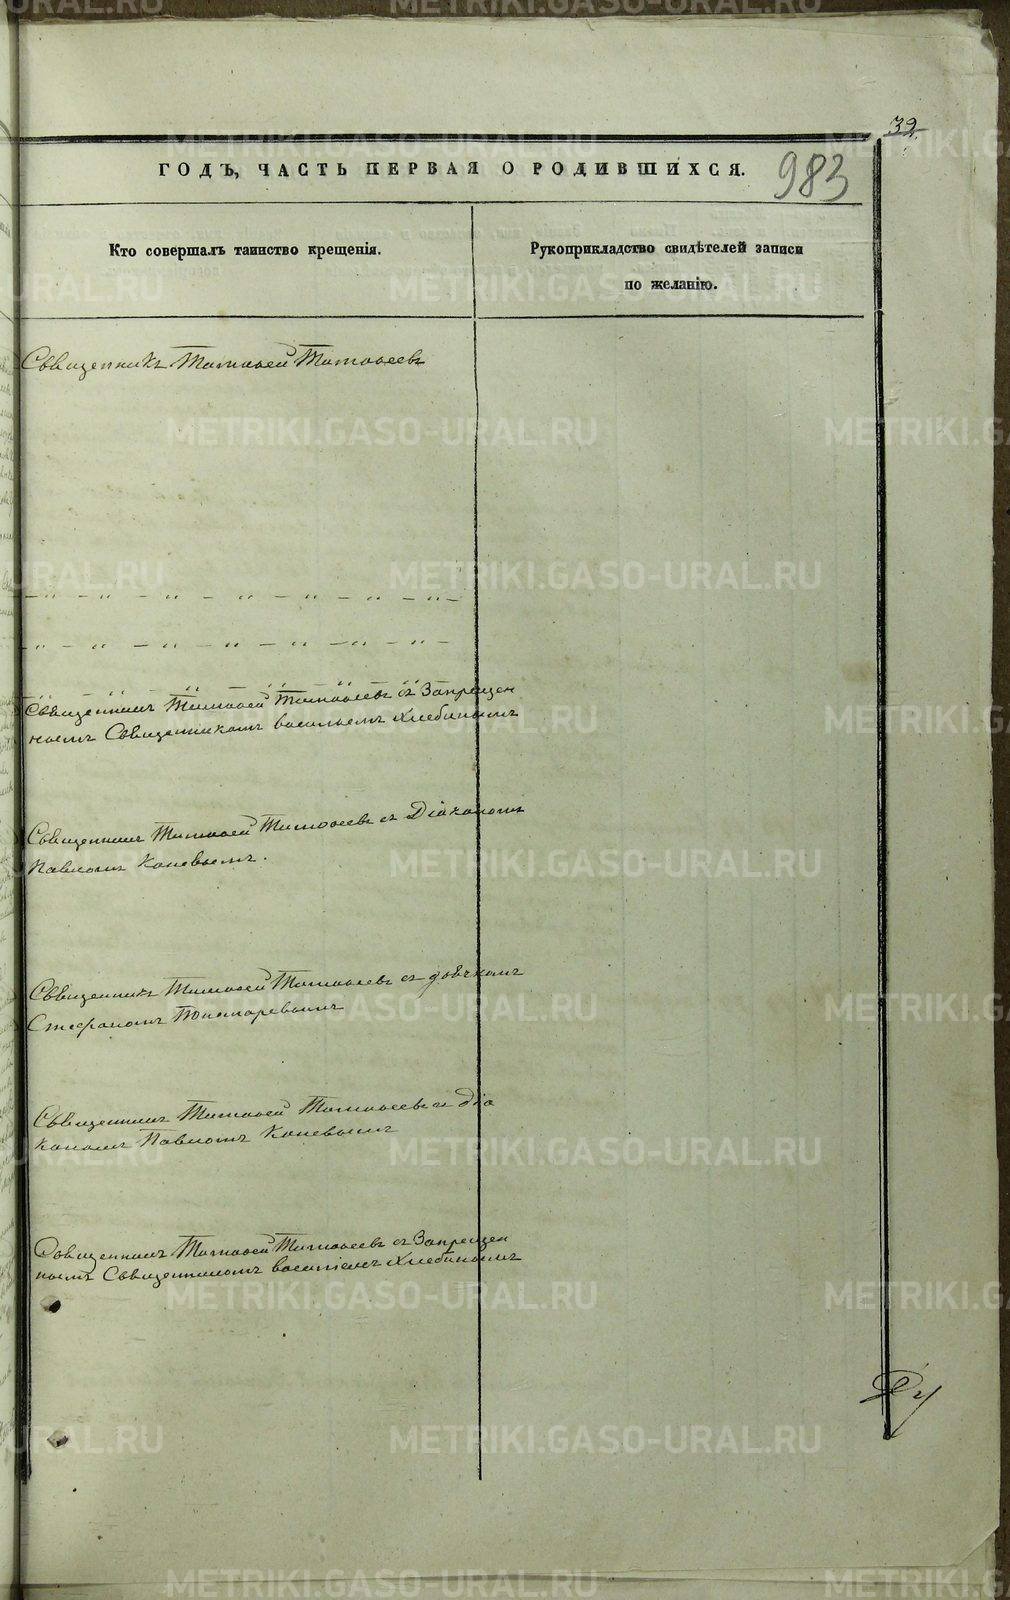 39
983
ГОДЪ, ЧАСТЬ ПЕРВАЯ О РОДИВШИХСЯ.
Кто совершалъ таинство крещенія.
Рукоприкладство свидѣтелей записи
по желанію.
Священникъ Тимоѳей Тимоѳеевъ
— „ — „ — „ — „ — „ — „ — „ —
— „ — „ — „ — „ — „ — „ — „ —
Священникъ Тимоѳей Тимоѳеевъ съ Запрещен
нымъ Священникомъ Васильемъ Хлебинымъ
Священникъ Тимоѳей Тимоѳеевъ съ Діакономъ
Павломъ Каневымъ.
Священникъ Тимоѳей Тимоѳеевъ съ дьячкомъ
Стефаномъ Пономаревымъ
Священникъ Тимоѳей Тимоѳеевъ съ діа
кономъ Павломъ Каневымъ
Священникъ Тимоѳей Тимоѳеевъ съ Запрещен
нымъ Священникомъ Васильемъ Хлебинымъ
METRIKI.GASO-URAL.RU